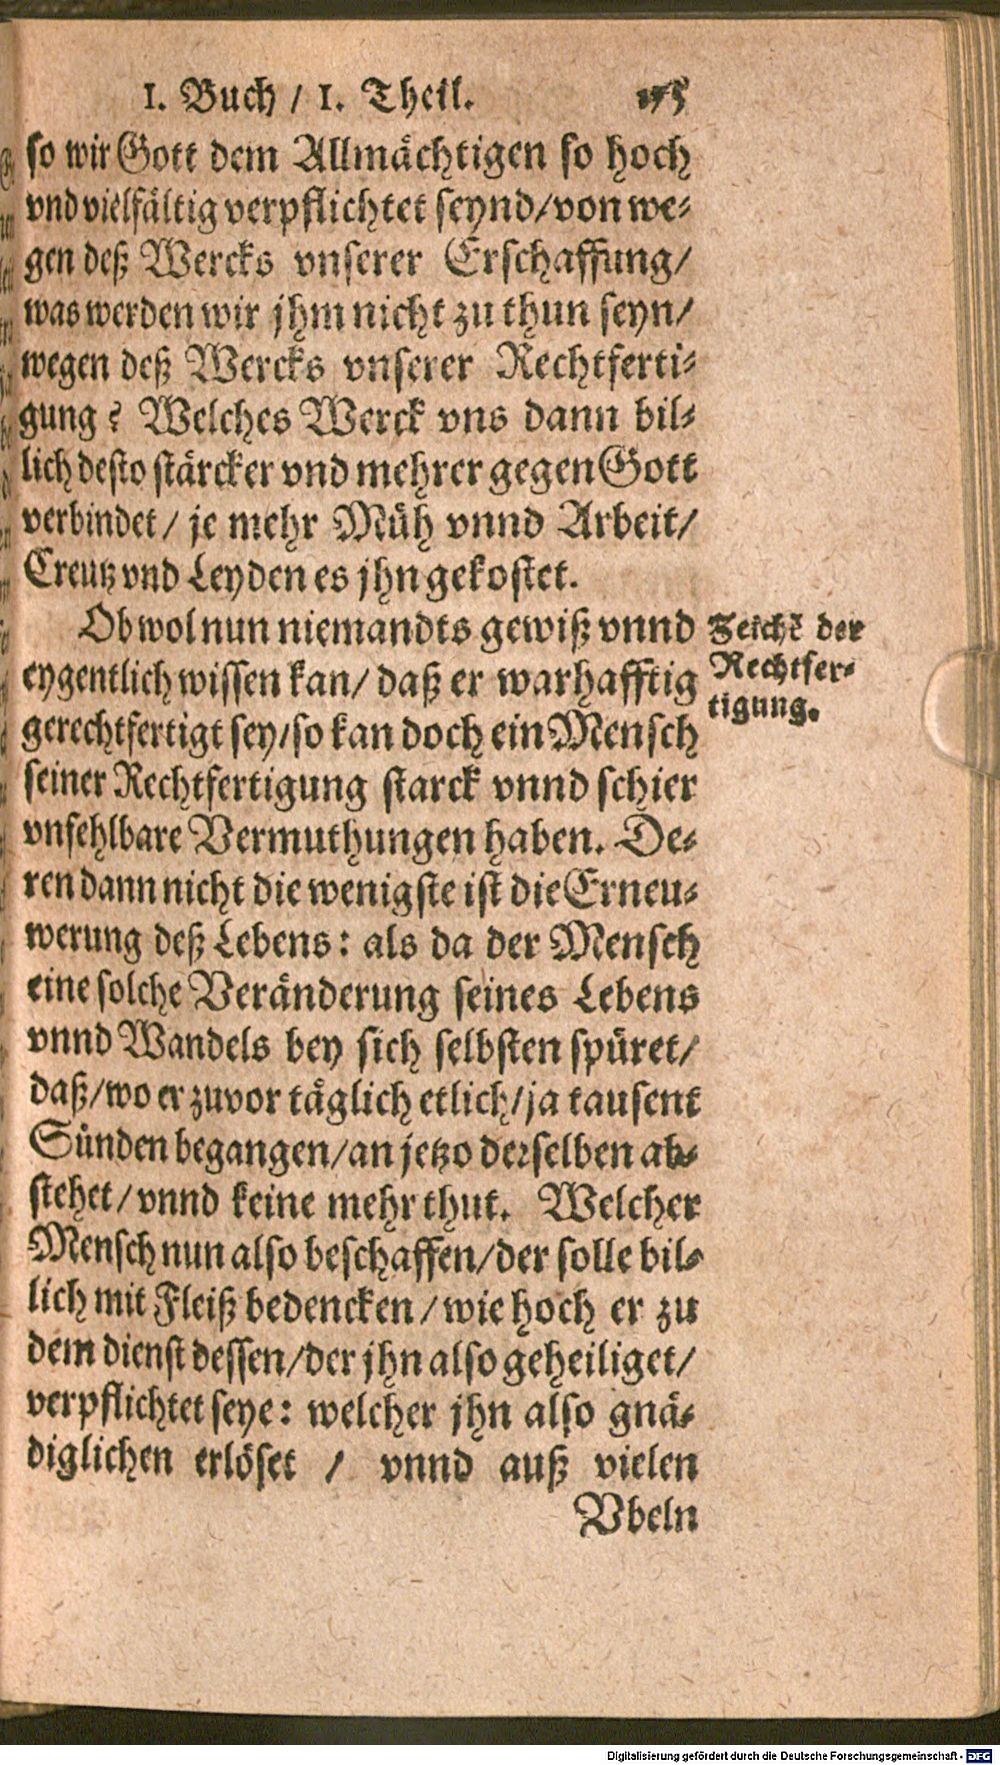 1. Buch / 1. Theil. 175
so wir Gott dem Allmächtigen so hoch
vnd vielfältig verpflichtet seynd/von we-
gen deß Wercks vnserer Erschaffung/
was werden wir jhm nicht zu thun seyn/
wegen deß Wercks vnserer Rechtferti-
gung? Welches Werck vns dann bil-
lich desto stärcker vnd mehrer gegen Gott
verbindet/ je mehr Müh vnnd Arbeit/
Creutz vnd Leyden es jhn gekostet.
Ob wol nun niemandts gewiß vnnd
eygentlich wissen kan/ daß er warhafftig
gerechtfertigt sey/so kan doch ein Mensch
seiner Rechtfertigung starck vnnd schier
vnfehlbare Vermuthungen haben. De-
ren dann nicht die wenigste ist die Erneu-
werung deß Lebens: als da der Mensch
eine solche Veränderung seines Lebens
vnnd Wandels bey sich selbsten spüret/
daß/wo er zuvor täglich etlich/ja tausent
Sünden begangen/an jetzo derselben ab-
stehet/vnnd keine mehr thut. Welcher
Mensch nun also beschaffen/der solle bil-
lich mit Fleiß bedencken/wie hoch er zu
dem dienst dessen/der jhn also geheiliget/
verpflichtet seye: welcher jhn also gnä-
diglichen erlöset / vnnd auß vielen
Vbeln
der
Rechtfer-
tigung.
Digitalisierung gefördert durch die Deutsche Forschungsgemeinschaft - DFG